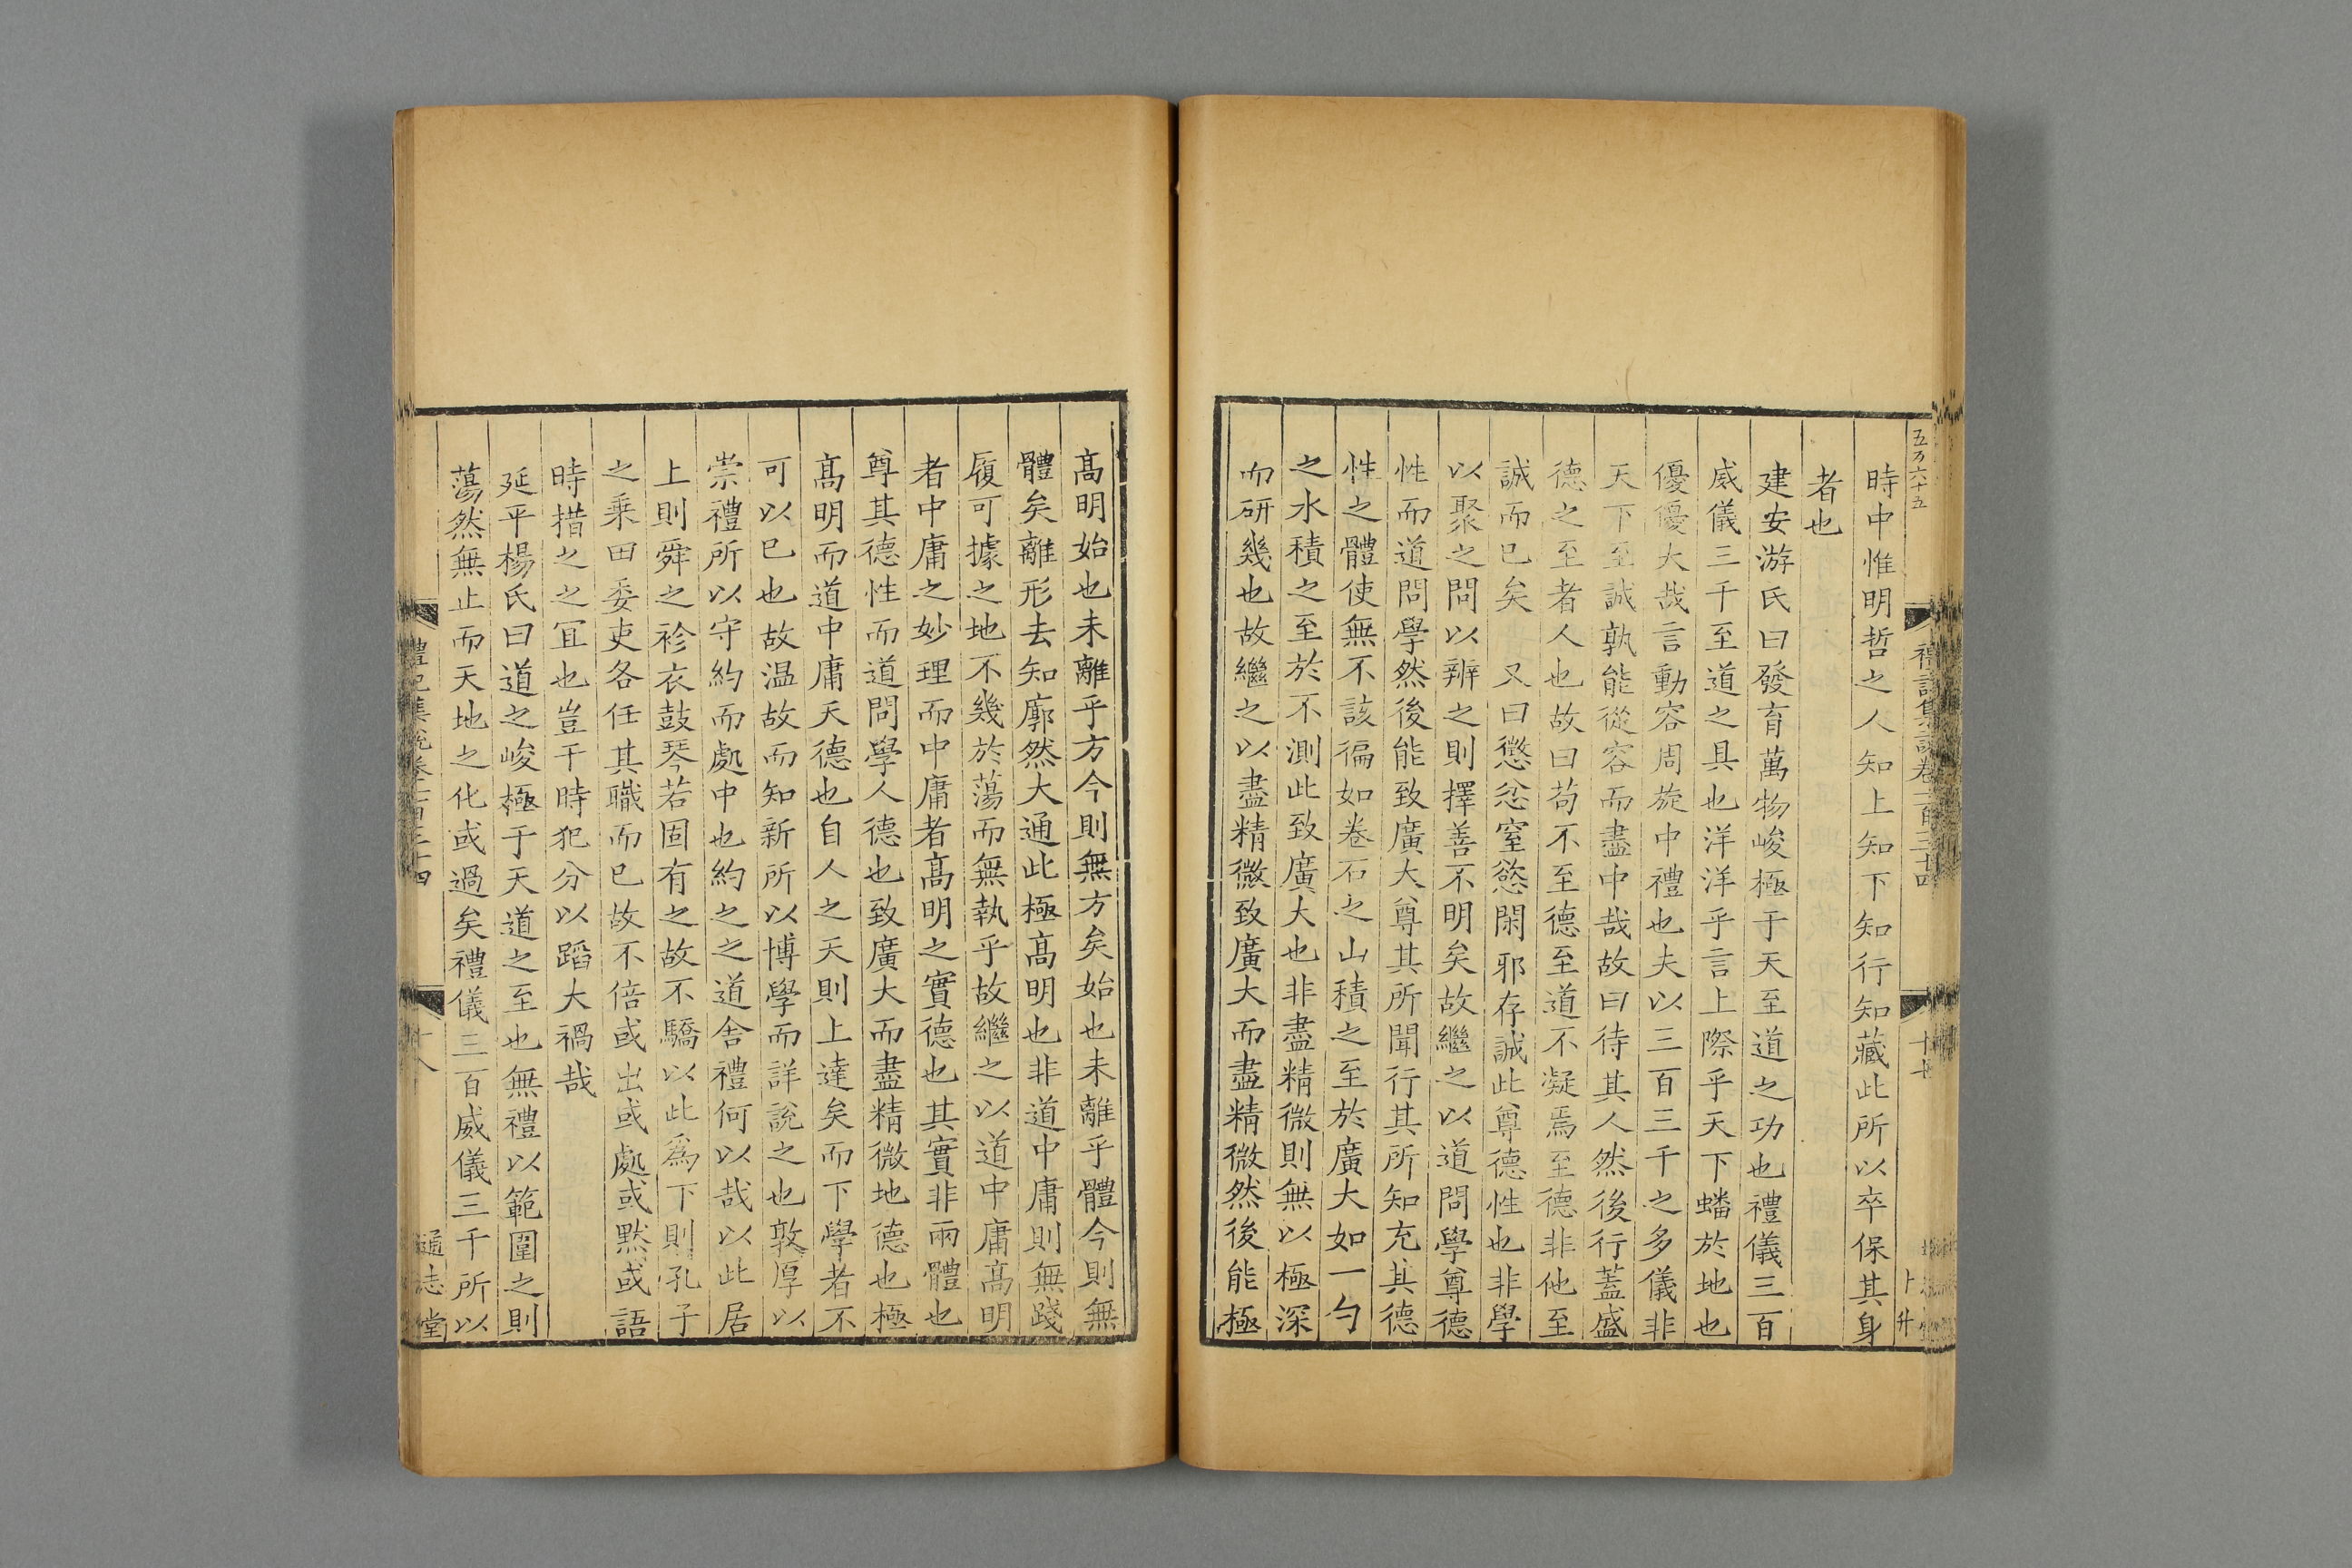 五百六十五
時中惟明哲之人知上知下知行知藏此所以卒保其身
者也
建安游氏曰發育萬物峻極于天至道之功也禮儀三百
威儀三千至道之具也洋洋乎言上際乎天下蟠於地也
優優大哉言動容周旋中禮也夫以三百三千之多儀非
天下至誠孰能從容而盡中哉故曰待其人然後行蓋盛
德之至者人也故曰苟不至德至道不凝焉至德非他至
誠而已矣 又曰懲忿窒慾閑邪存誠此尊德性也非學
以聚之問以辨之則擇善不明矣故繼之以道問學尊德
性而道問學然後能致廣大尊其所聞行其所知充其德
性之體使無不該徧如卷石之山積之至於廣大如一勺
之水積之至於不測此致廣大也非盡精微則無以極深
而研幾也故繼之以盡精微致廣大而盡精微然後能極
高明始也未離乎方今則無方矣始也未離乎體今則無
體矣離形去知廓然大通此極高明也非道中庸則無踐
履可據之地不幾於蕩而無執乎故繼之以道中庸高明
者中庸之妙理而中庸者高明之實德也其實非兩體也
尊其德性而道問學人德也致廣大而盡精微地德也極
高明而道中庸天德也自人之天則上達矣而下學者不
可以已也故温故而知新所以博學而詳說之也敦厚以
崇禮所以守約而處中也約之之道舍禮何以哉以此居
上則舜之袗衣鼓琴若固有之故不驕以此爲下則孔子
之乘田委吏各任其職而已故不倍或出或處或默或語
時措之之宜也豈干時犯分以蹈大禍哉
延平楊氏曰道之峻極于天道之至也無禮以範圍之則
蕩然無止而天地之化或過矣禮儀三百威儀三千所以
禮記集說卷一百三十四
十八
通志堂